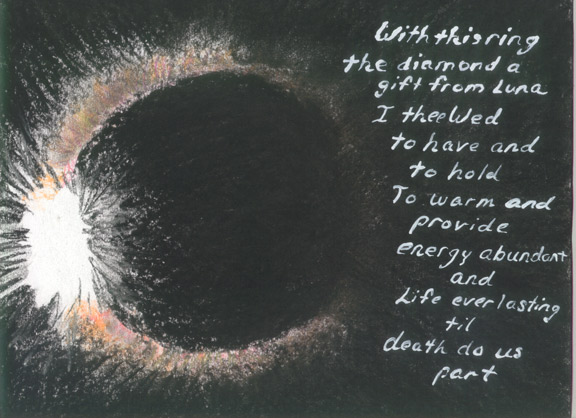 With this ring
the diamond a
gift from Luna
I thee Wed
to have and
to hold
To warm and
provide
energy abundant
and
Life everlasting
til
death do us
part